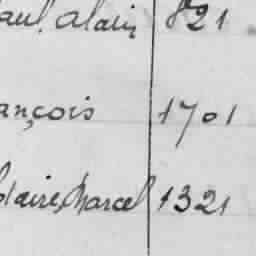 aul, Alain 821
ançois 1701
laire, Marcel 1321